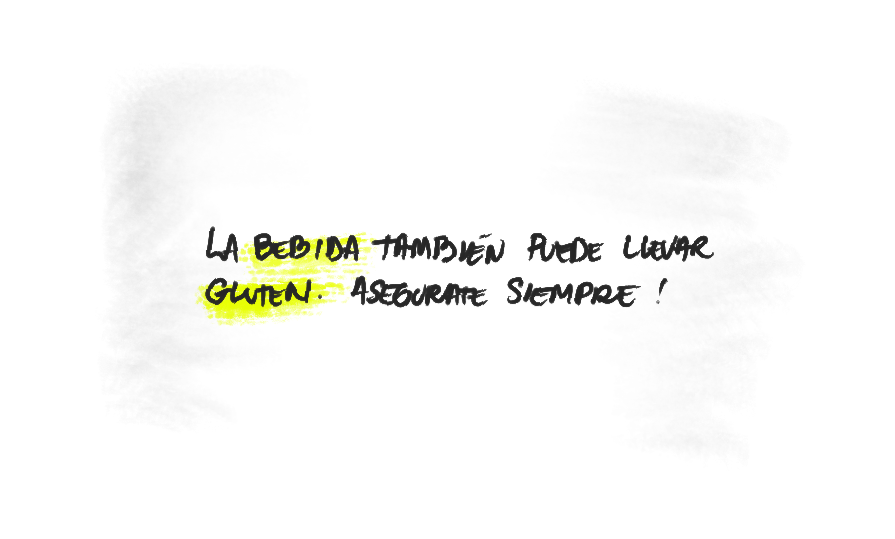 LA BEBIDA TAMBIÉN PUEDE LLEVAR
GLUTEN. ASEGURATE SIEMPRE!